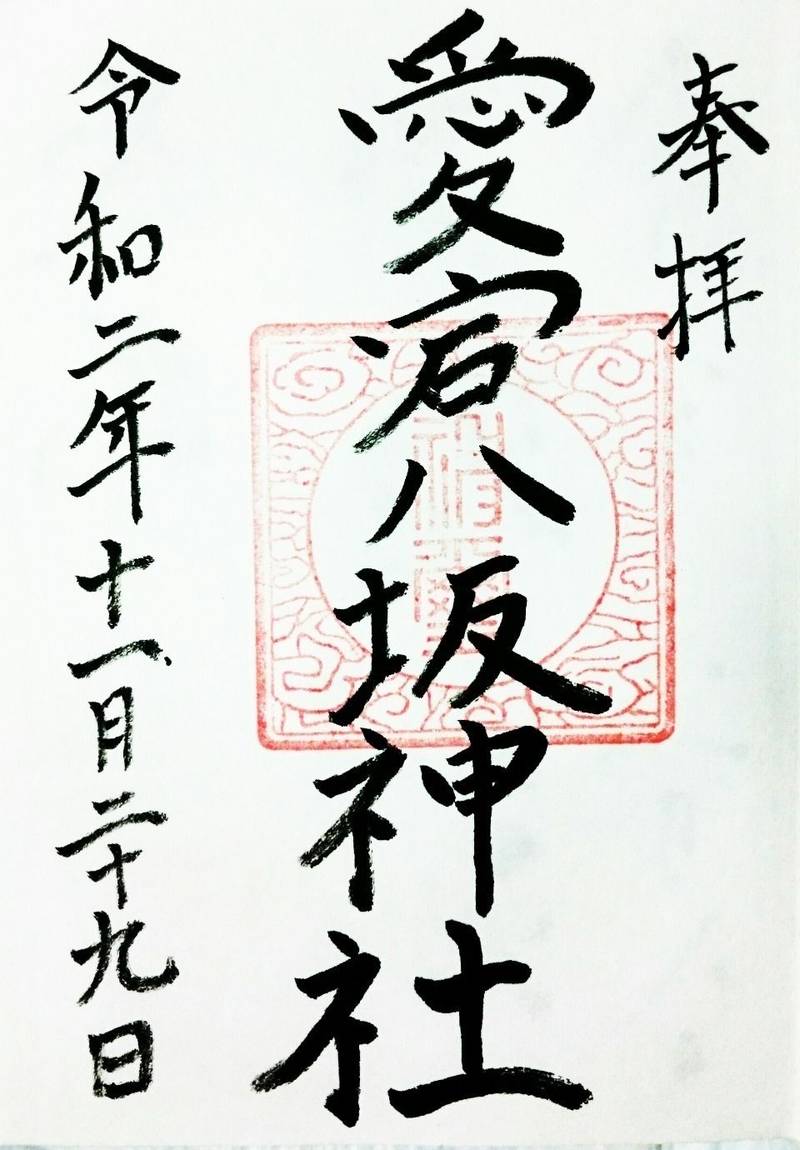 奉拝
愛宕八坂神社
令和二年十一月二十九日